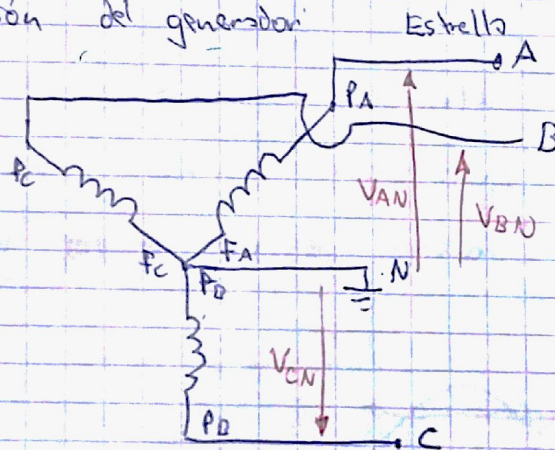 ón del generador Estrella
A
PA
B
PC
VAN
VBN
FC
FA
PB
N
VCN
PB
C